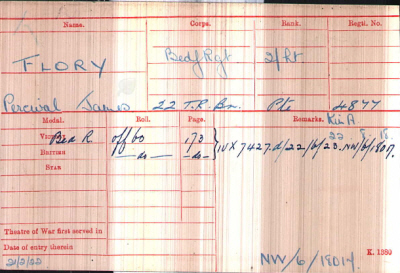 Name. Corps. Rank. Regtl. No.
FLORY Bedf Rgt 2/Lt
Percival James 22 T.R. Bn. Pte 4877
Medal. Roll. Page. Remarks. K in A
22 8 18
Victory Bed R. off 60 173 IVX 7427.d/22/6/23. NW/6/18017.
British —do— —do—
Star
Theatre of War first served in
Date of entry therein K. 1380
NW/6/18014